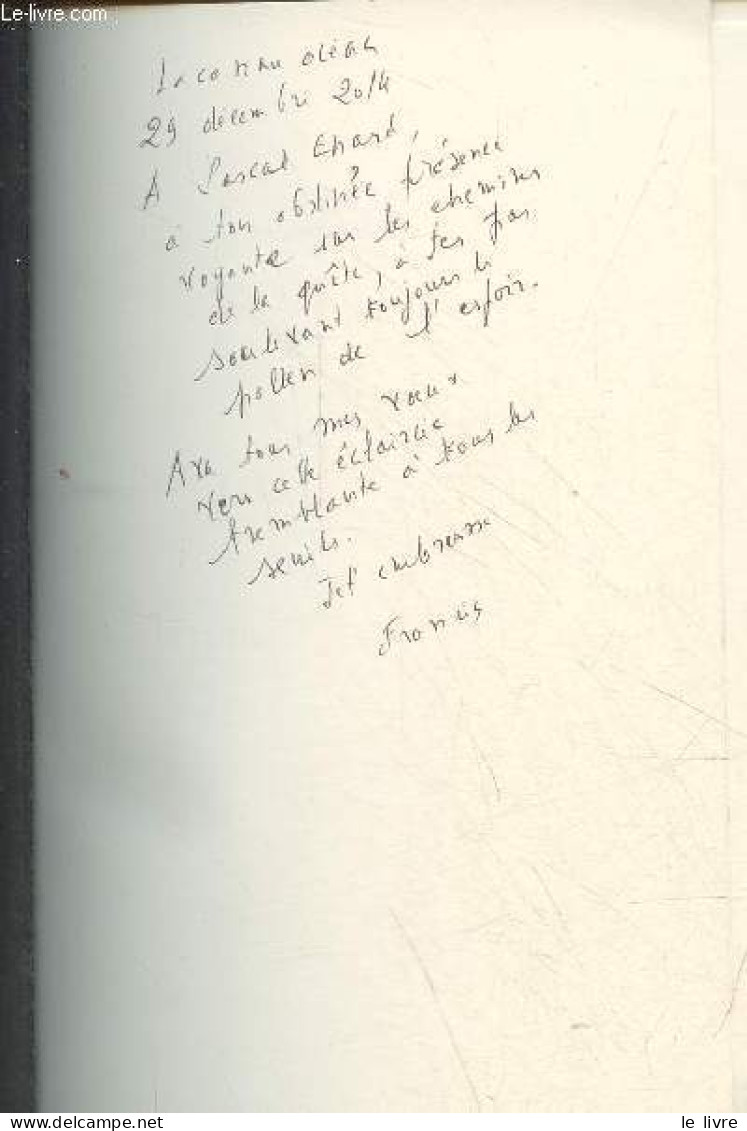 Le-livre.com
Lacanau océan
29 décembre 2014
A Pascal Enard,
à ton obstinée présence
voyante sur les chemins
de la quête, à tes pas
soulevant toujours le
pollen de l'espoir.
Avec tous mes vœux
vers cette éclaircie
tremblante à tous les
seuils.
Je t'embrasse
Francis
le livre